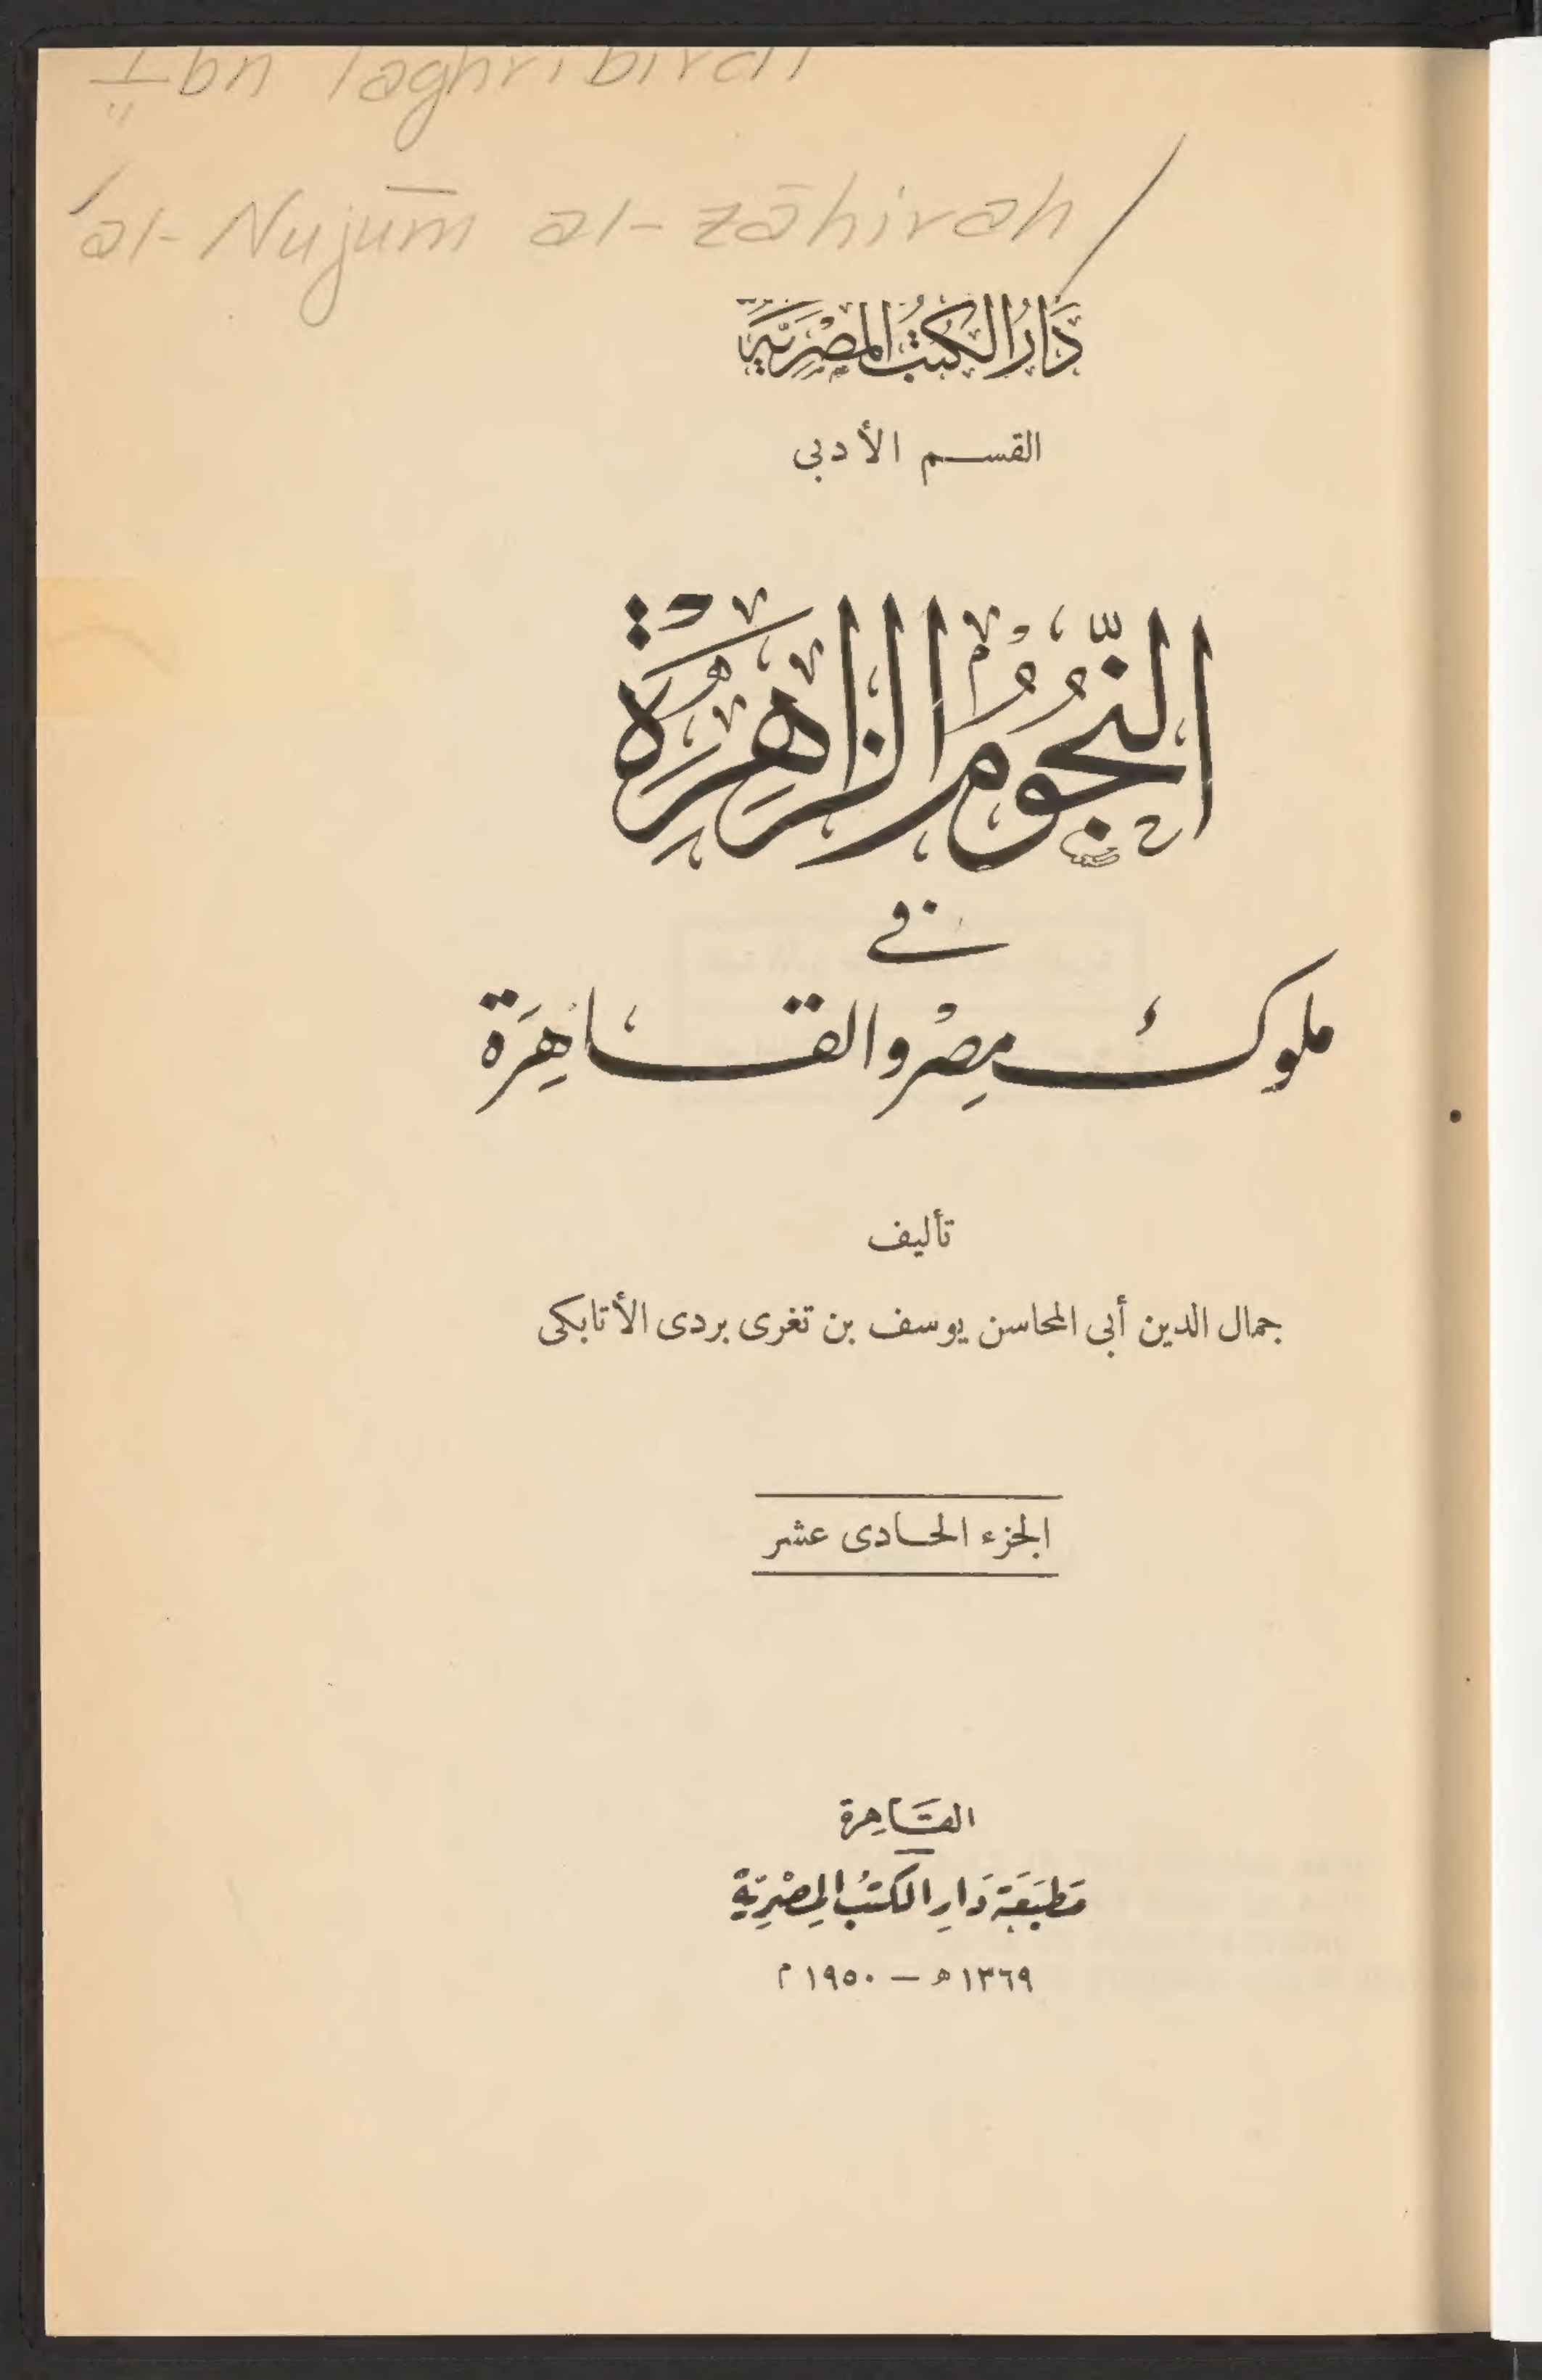 Ibn Taghribirdi
al-Nujūm al-zāhirah
دَارُ الكُتُبِ المِصْرِيَّةِ
القسم الأدبى
النُّجُومُ الزَّاهِرَةُ
فى
ملوك مِصْر والقاهِرَة
تأليف
جمال الدين أبى المحاسن يوسف بن تغرى بردى الأتابكى
الجزء الحادى عشر
القاهِرة
مَطبَعَة دَارِ الكتبُ المِصْرِيّة
١٣٦٩ ه — ١٩٥٠ م